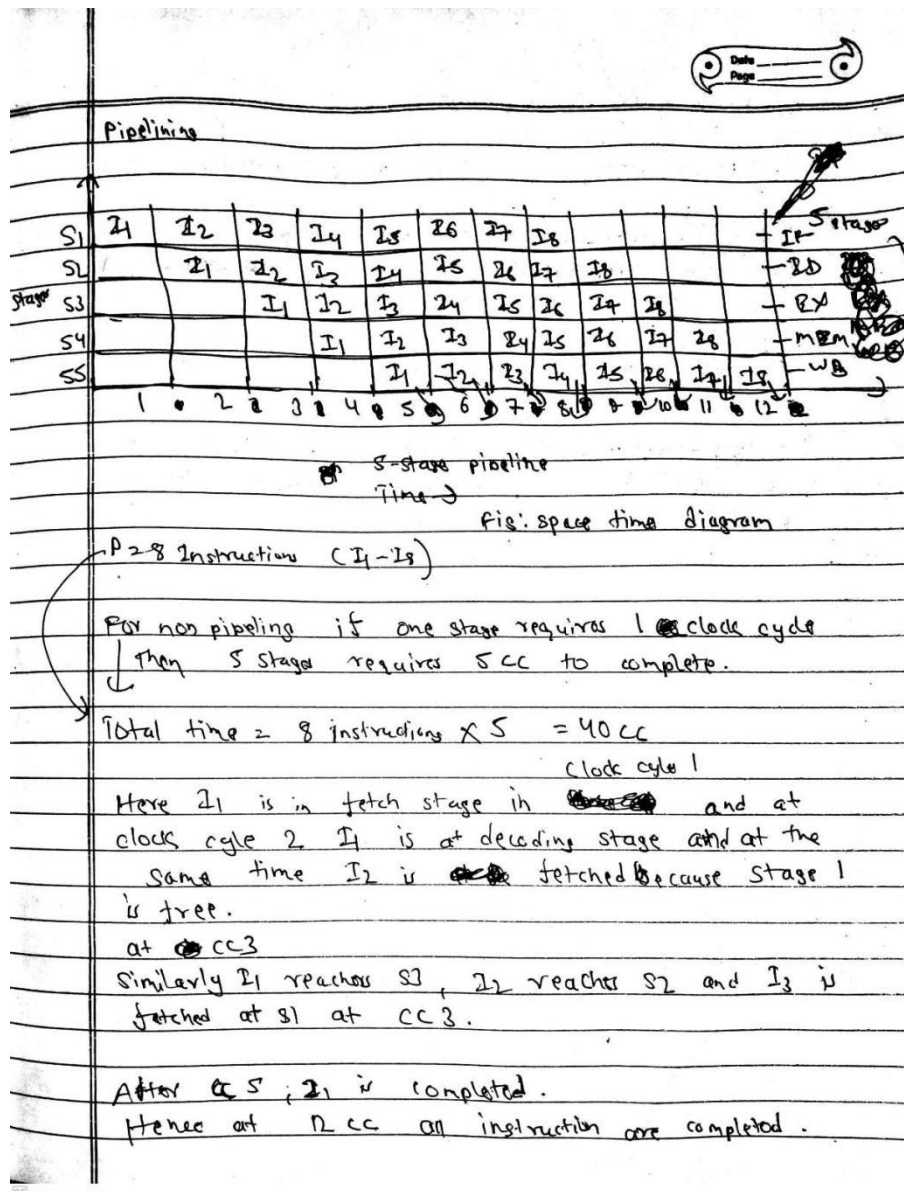 Date
Page
Pipelining
S1 I1 I2 I3 I4 I5 I6 I7 I8 - IF 5 stages
S2 I1 I2 I3 I4 I5 I6 I7 I8 - ID
Stages S3 I1 I2 I3 I4 I5 I6 I7 I8 - EX
S4 I1 I2 I3 I4 I5 I6 I7 I8 - MEM
S5 I1 I2 I3 I4 I5 I6 I7 I8 - WB
1 2 3 4 5 6 7 8 9 10 11 12
5-stage pipeline
Time →
Fig: space time diagram
P = 8 Instructions (I1 - I8)
For non pipeling if one stage requires 1 clock cycle
Then 5 stages requires 5 CC to complete.
Total time = 8 instructions X 5 = 40 CC
clock cyle 1
Here I1 is in fetch stage in and at
clock cyle 2 I1 is at decoding stage and at the
same time I2 is fetched because stage 1
is free.
at CC3
Similarly I1 reaches S3, I2 reaches S2 and I3 is
fetched at S1 at CC3.
After CC 5, I1 is completed.
Hence at 12 CC all instruction are completed.